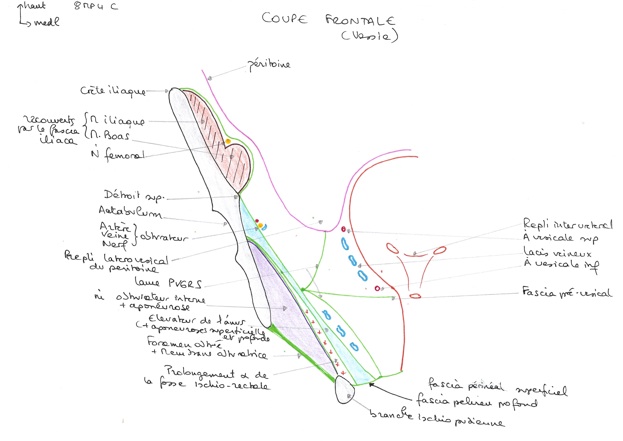 haut
→ medl
COUPE FRONTALE
(Vessie)
péritoine
Crête iliaque
recouverts
par le fascia
iliaca
M. iliaque
M. Psoas
N femoral
Détroit sup.
Acetabulum
Artère
Veine
Nerf
obturateur
Repli latero vesical
du peritoine
lame PVGRS
m obturateur interne
+ aponeurose
Elevateur de l'anus
(+ aponeuroses superficielle
et profonde
Foramen obturé
+ Membrane obturatrice
Prolongement α de
la fosse Ischio-rectale
Repli inter ureteral
A vesicale sup
lacis veineux
A vesicale inf
Fascia pré-vesical
fascia périnéal superficiel
fascia pelvien profond
branche Ischio pubienne